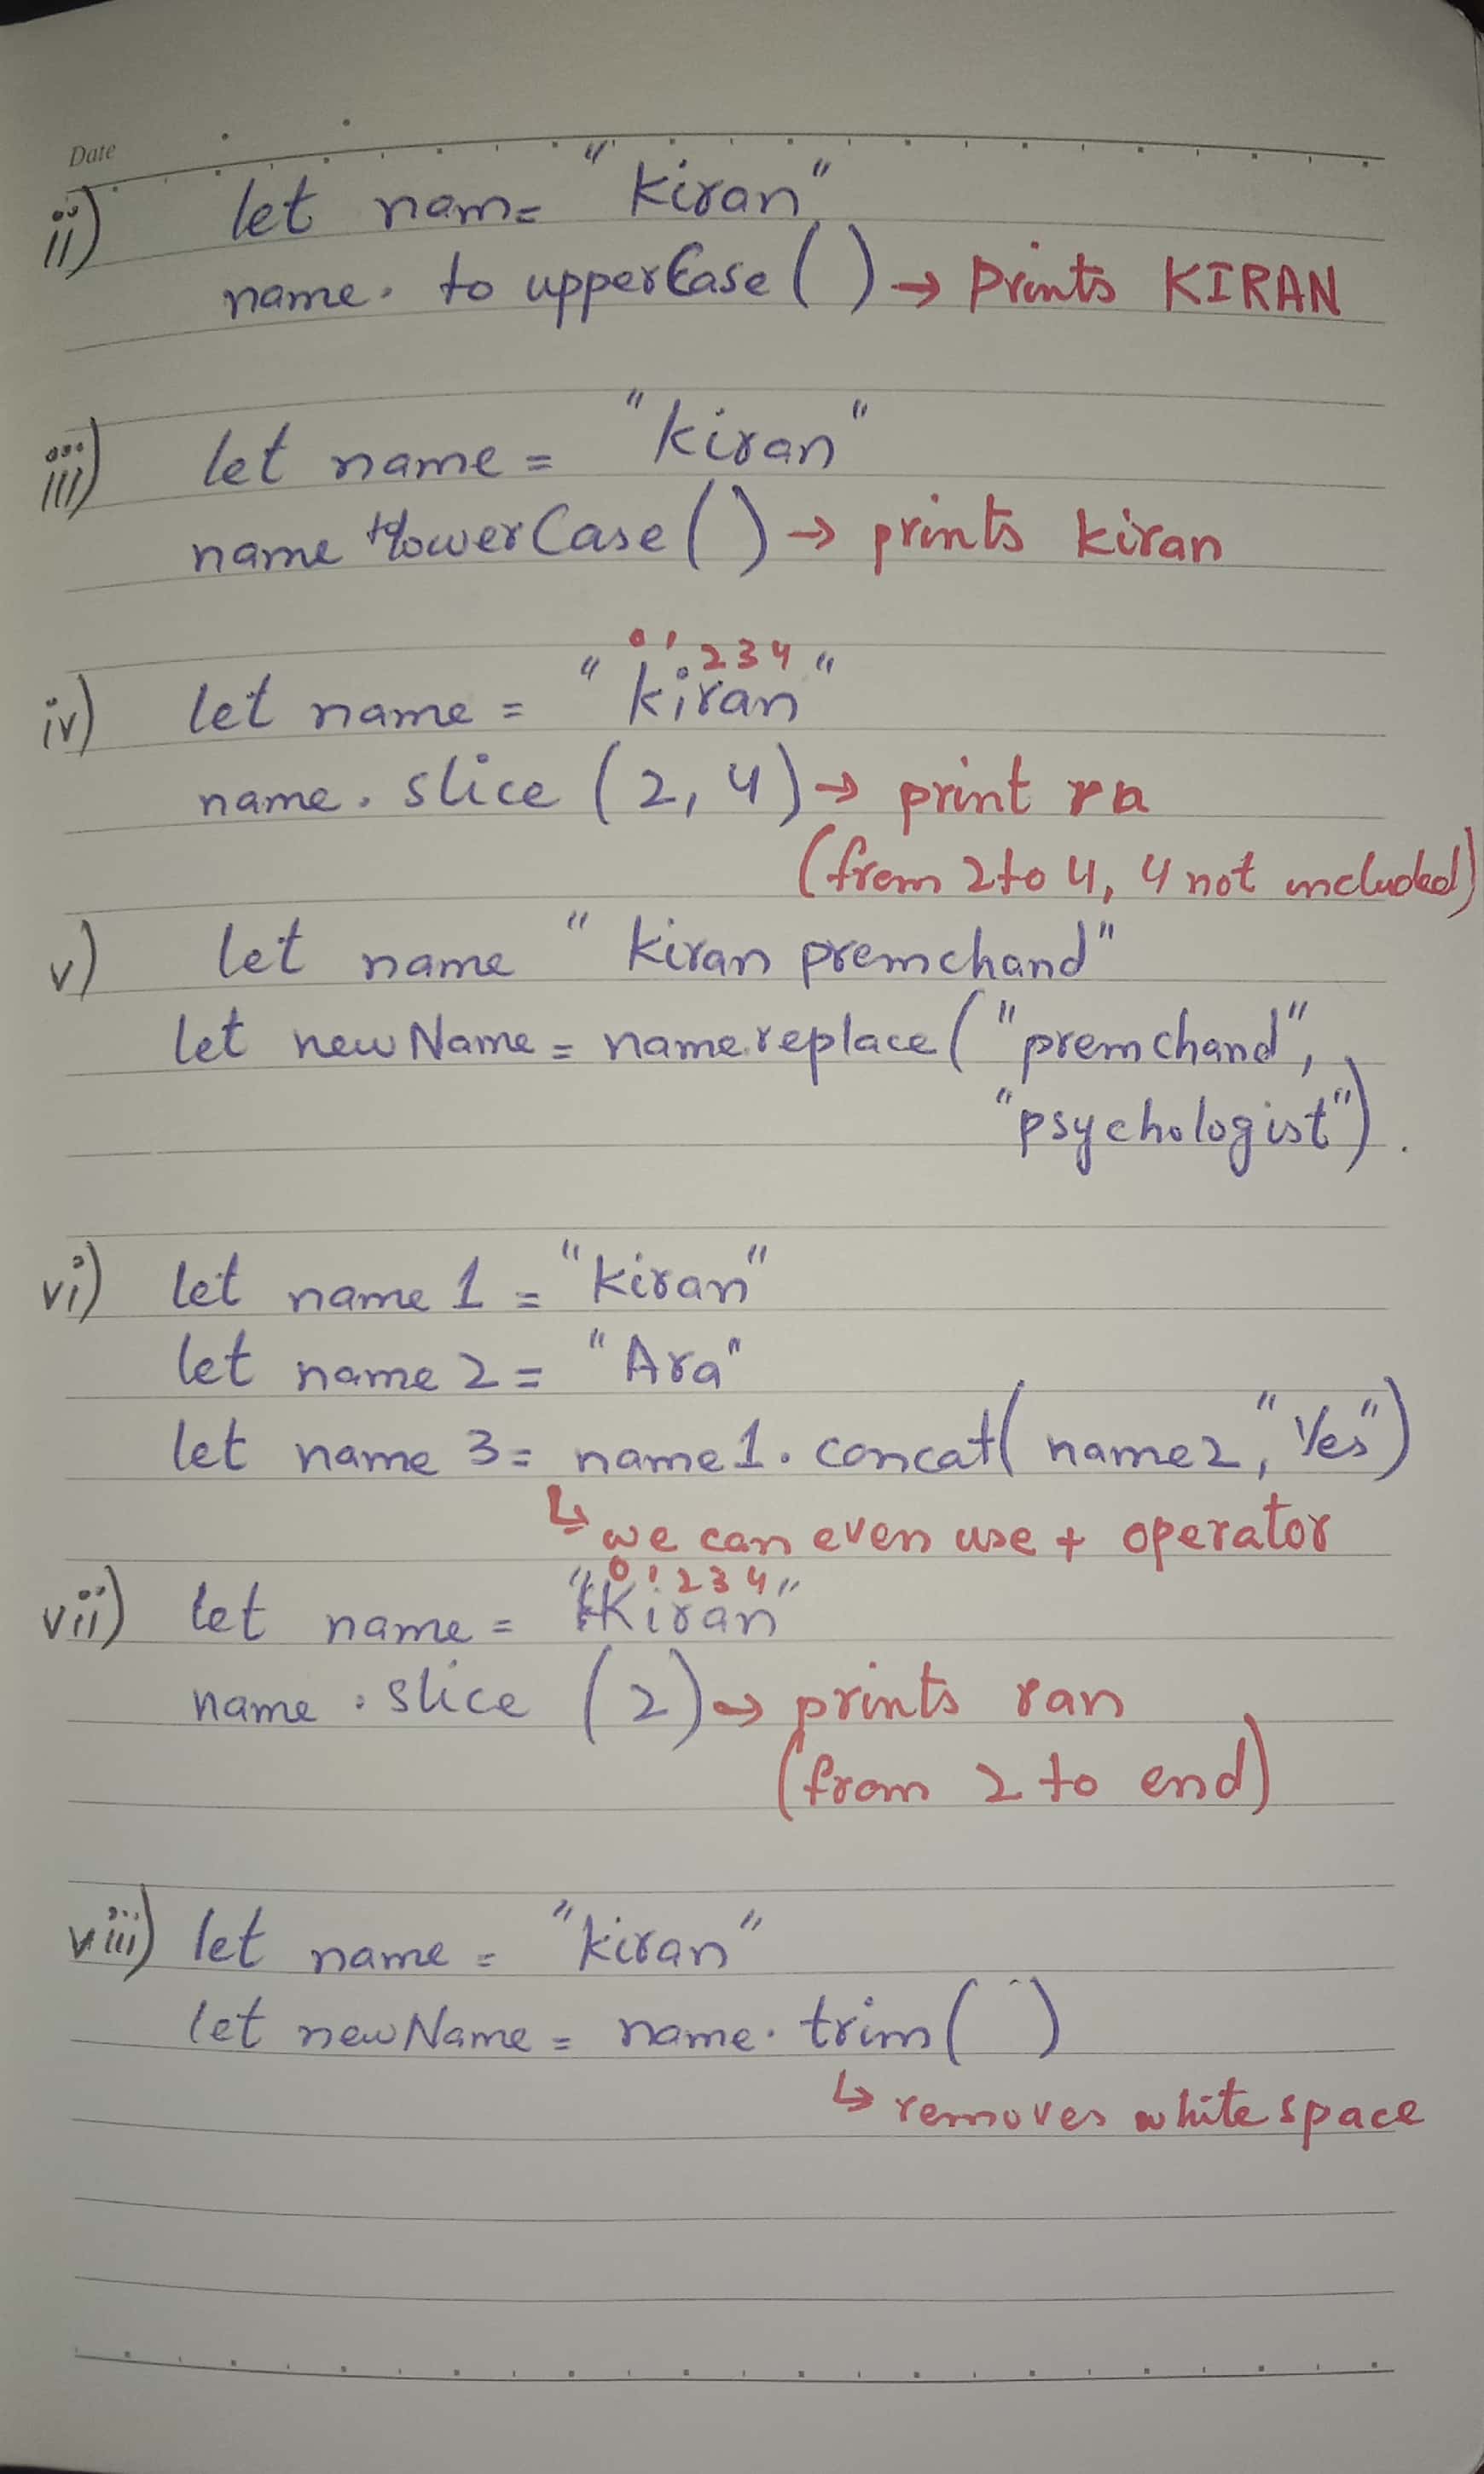 Date
ii) let nam= "kiran"
name. to upperCase () → Prints KIRAN
iii) let name = "kiran"
name toLowerCase () → prints kiran
0 1 2 3 4
iv) let name = "kiran"
name. slice (2, 4) → print ra
(from 2 to 4, 4 not included)
v) let name "kiran premchand"
let newName = name.replace ("premchand",
"psychologist").
vi) let name 1 = "kiran"
let name 2 = "Ara"
let name 3 = name1. concat( name2, "Yes")
↳ we can even use + operator
0 1 2 3 4
vii) let name = "Kiran"
name . slice (2) → prints ran
(from 2 to end)
viii) let name = "kiran"
let newName = name. trim( )
↳ removes white space